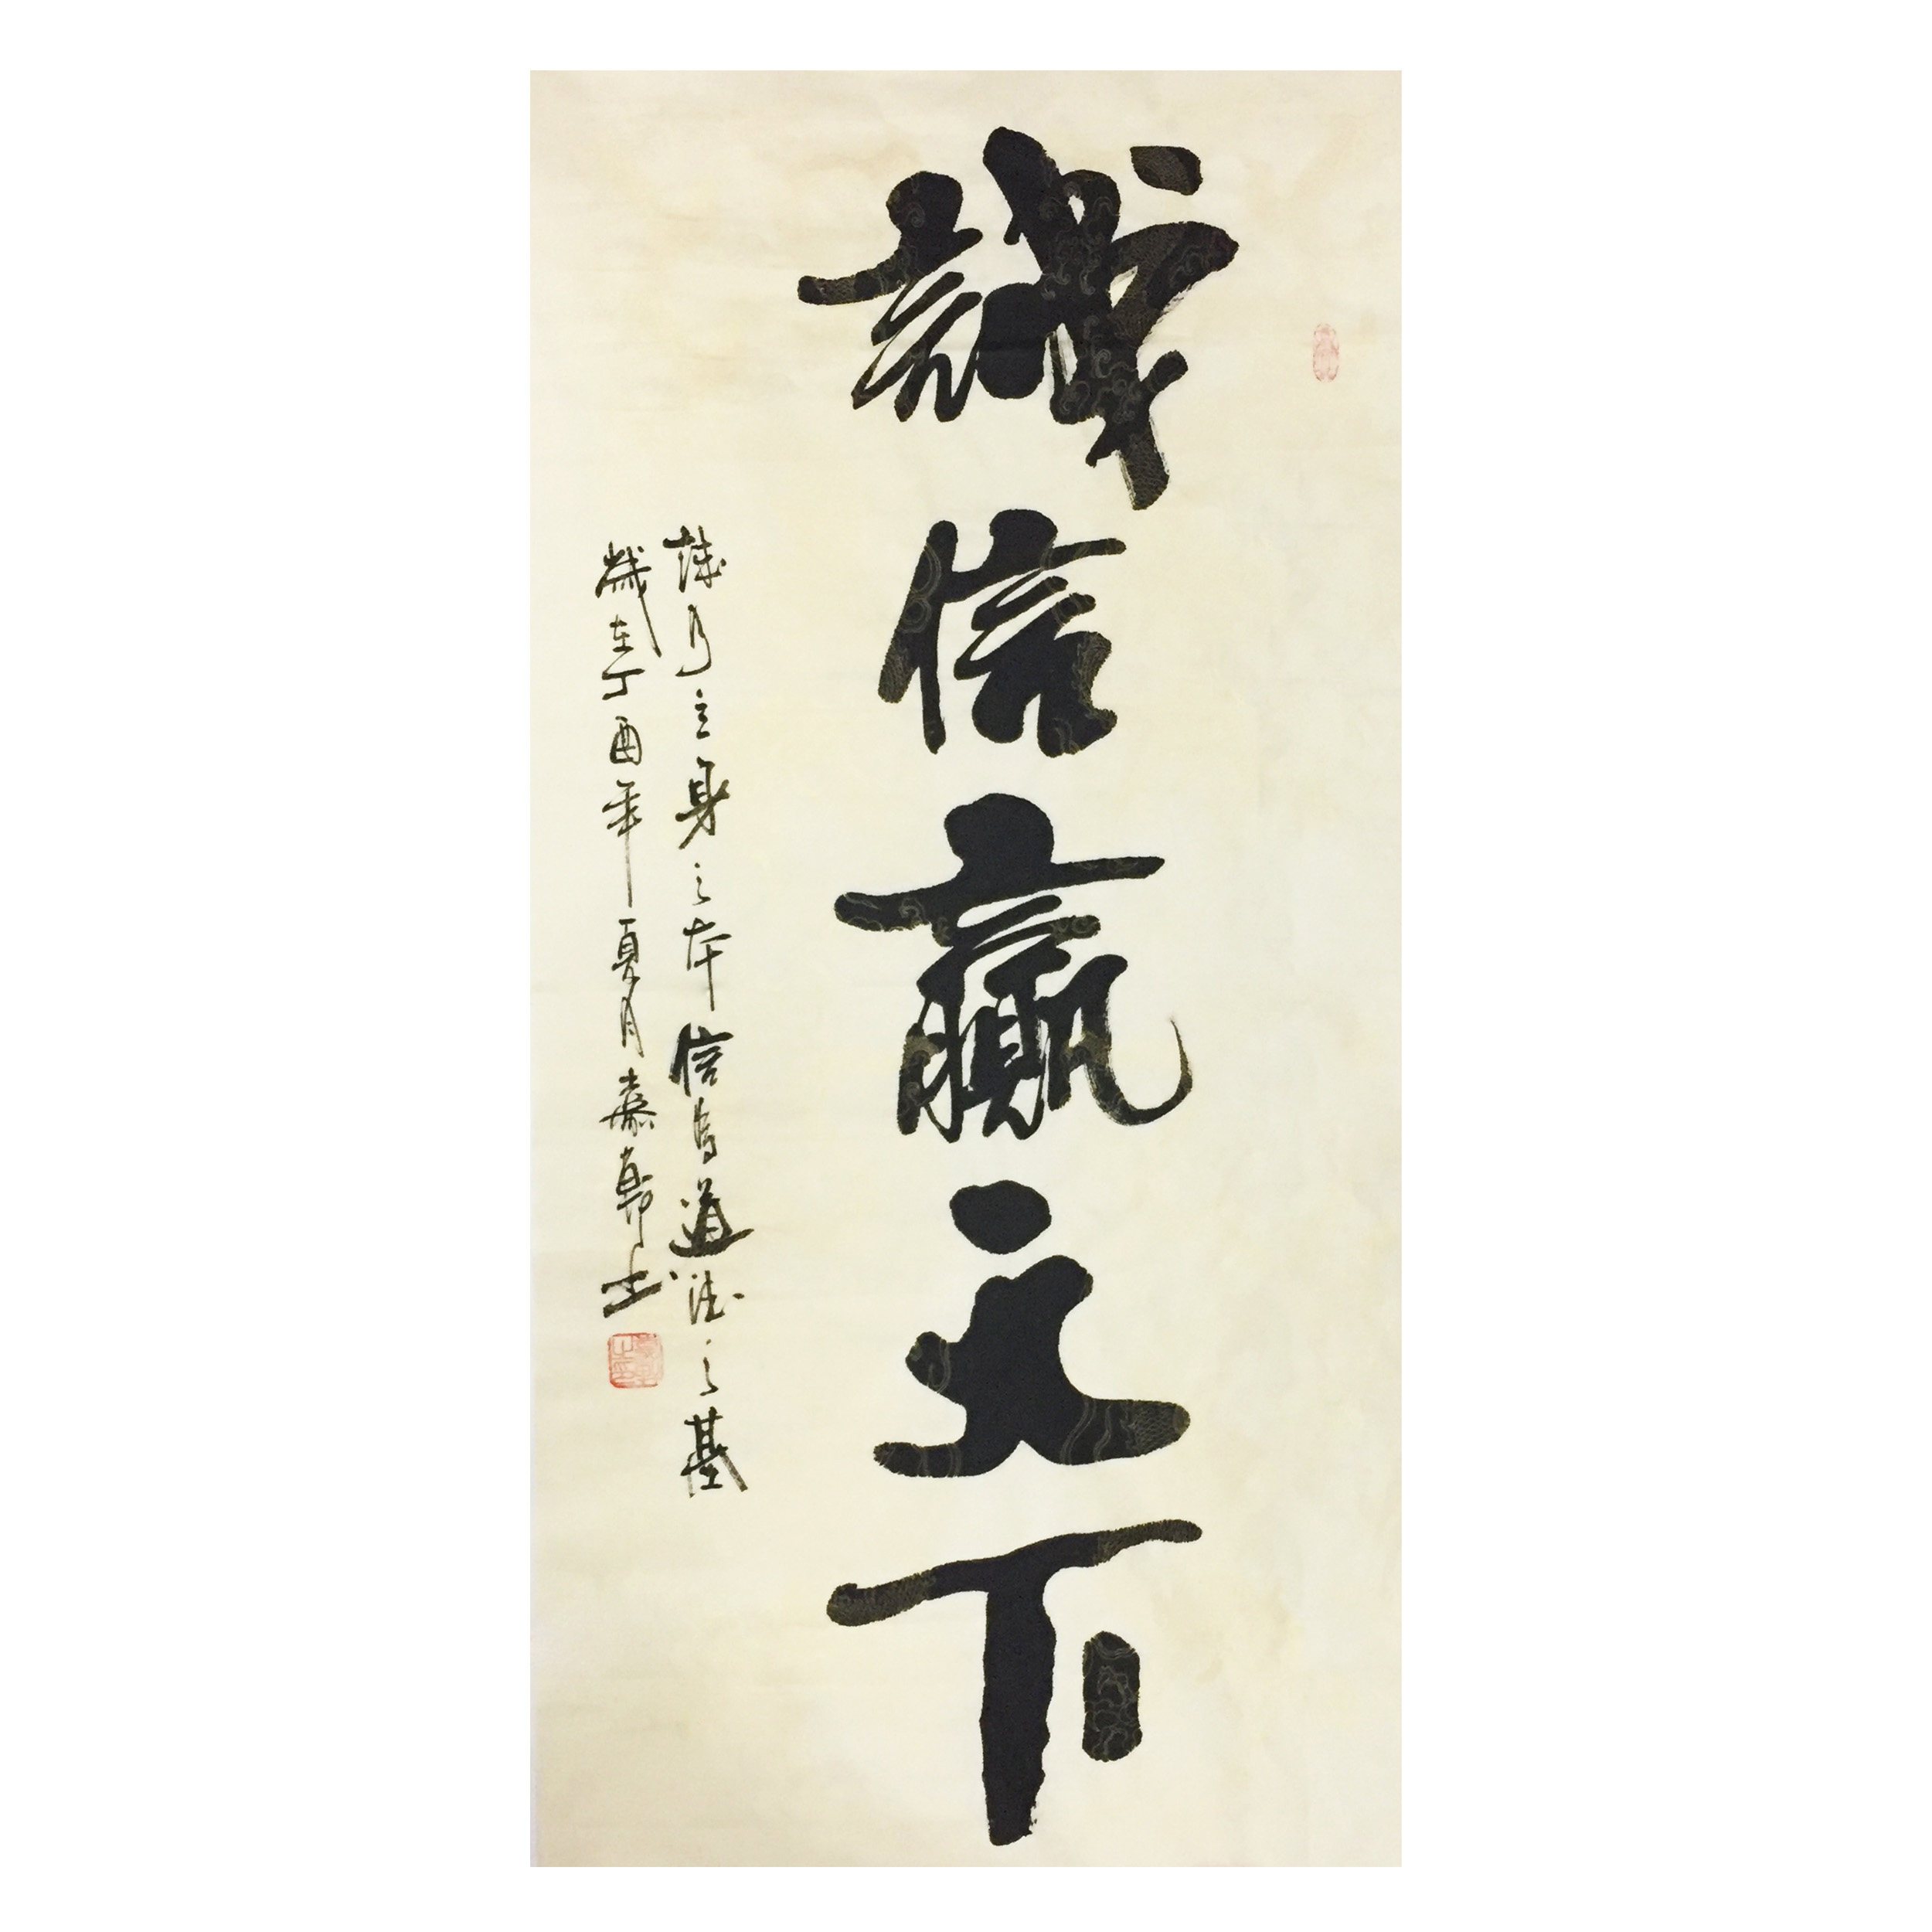 誠信贏天下
誠乃立身之本信為道德之基
歲在丁酉年夏月 書